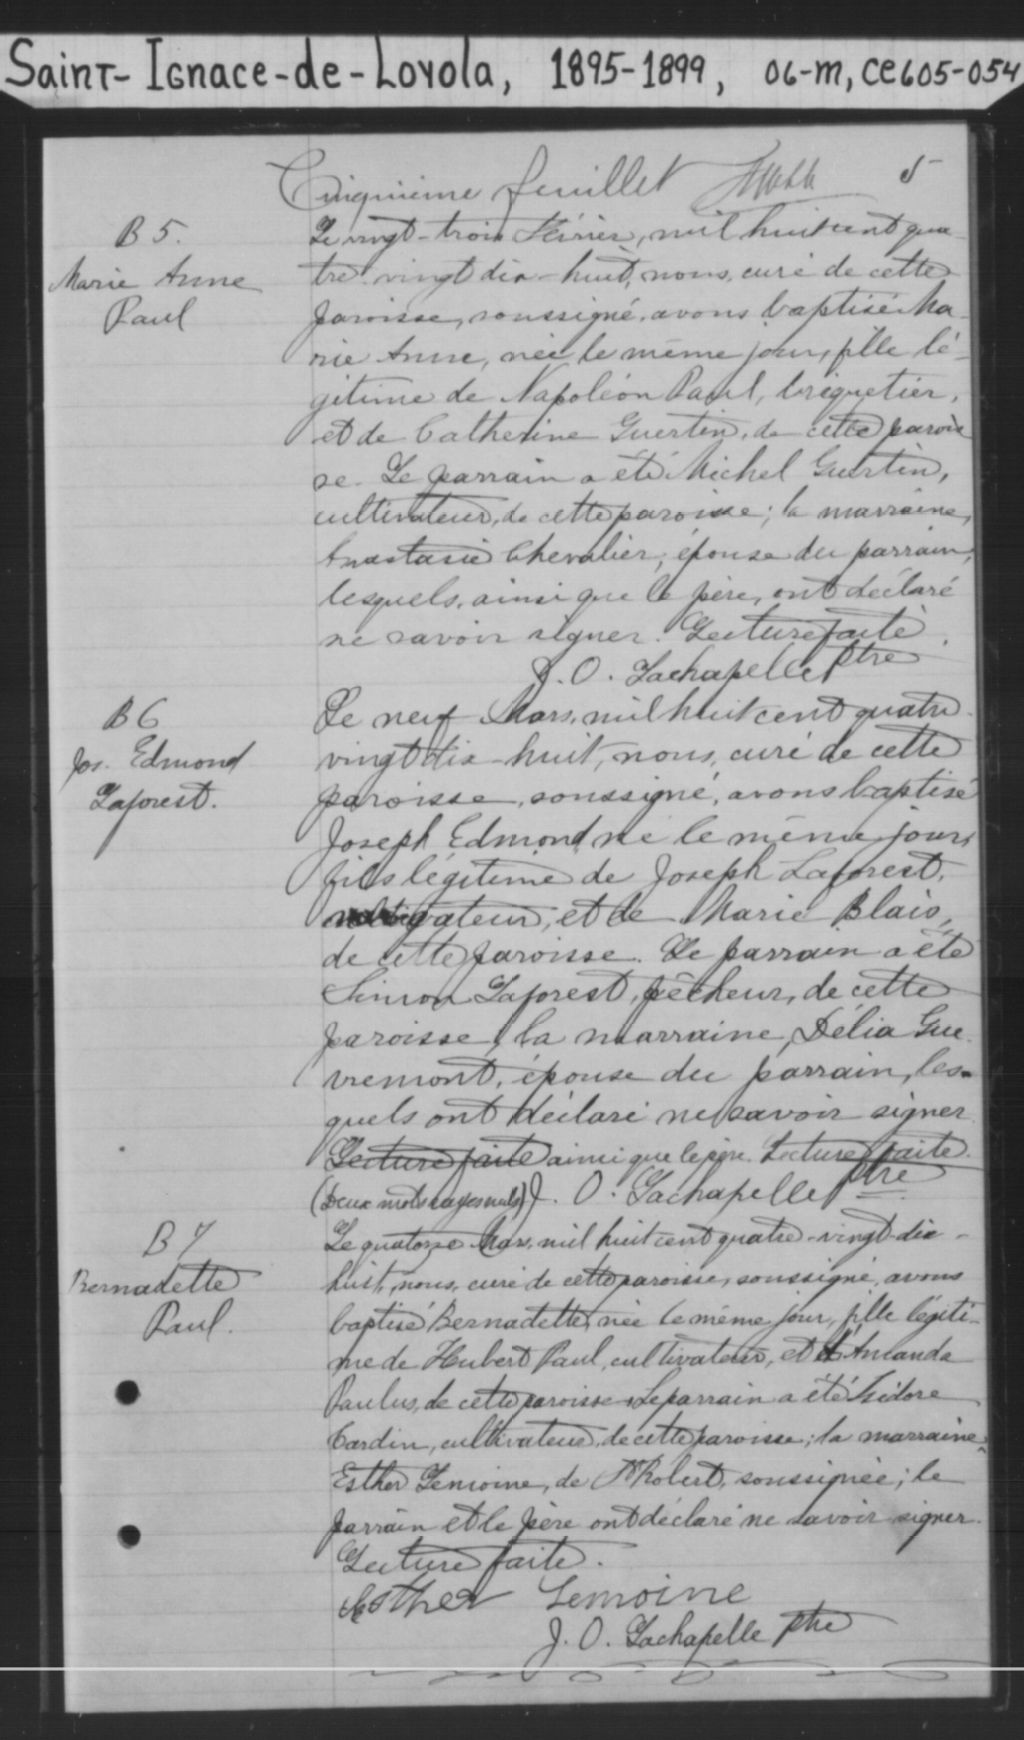 Saint-Ignace-de-Loyola, 1895-1899, 06-M, CE605-054
Cinquième feuillet 5
B 5.
Marie Anne
Paul
Le vingt-trois Février, mil huit cent qua-
tre vingt dix-huit, nous, curé de cette
paroisse, soussigné, avons baptisé Ma-
rie Anne, née le même jour, fille lé-
gitime de Napoléon Paul, briquetier,
et de Catherine Guertin, de cette parois
se. Le parrain a été Michel Guertin,
cultivateur, de cette paroisse; la marraine,
Anastasie Chevalier, épouse du parrain,
lesquels, ainsi que le père, ont déclaré
ne savoir signer. Lecture faite.
J. O. Lachapelle Ptre
B 6
Jos. Edmond
Laforest.
Le neuf Mars, mil huit cent quatre
vingt dix-huit, nous, curé de cette
paroisse, soussigné, avons baptisé
Joseph Edmond né le même jour,
fils légitime de Joseph Laforest,
navigateur, et de Marie Blais,
de cette paroisse. Le parrain a été
Simon Laforest, pêcheur, de cette
paroisse, la marraine, Délia Gue
vremont, épouse du parrain, les-
quels ont déclaré ne savoir signer
Lecture faite ainsi que le père. Lecture faite.
(Deux mots rayés nuls) J. O. Lachapelle Ptre
B 7
Bernadette
Paul.
Le quatorze Mars, mil huit cent quatre-vingt-dix-
huit, nous, curé de cette paroisse, soussigné, avons
baptisé Bernadette, née le même jour, fille légiti-
me de Hubert Paul, cultivateur, et d'Amanda
Paulus, de cette paroisse. Le parrain a été Isidore
Cardin, cultivateur, de cette paroisse; la marraine
Esther Lemoine, de St Robert, soussignée; le
parrain et le père ont déclaré ne savoir signer.
Lecture faite.
Esther Lemoine
J. O. Lachapelle Ptre